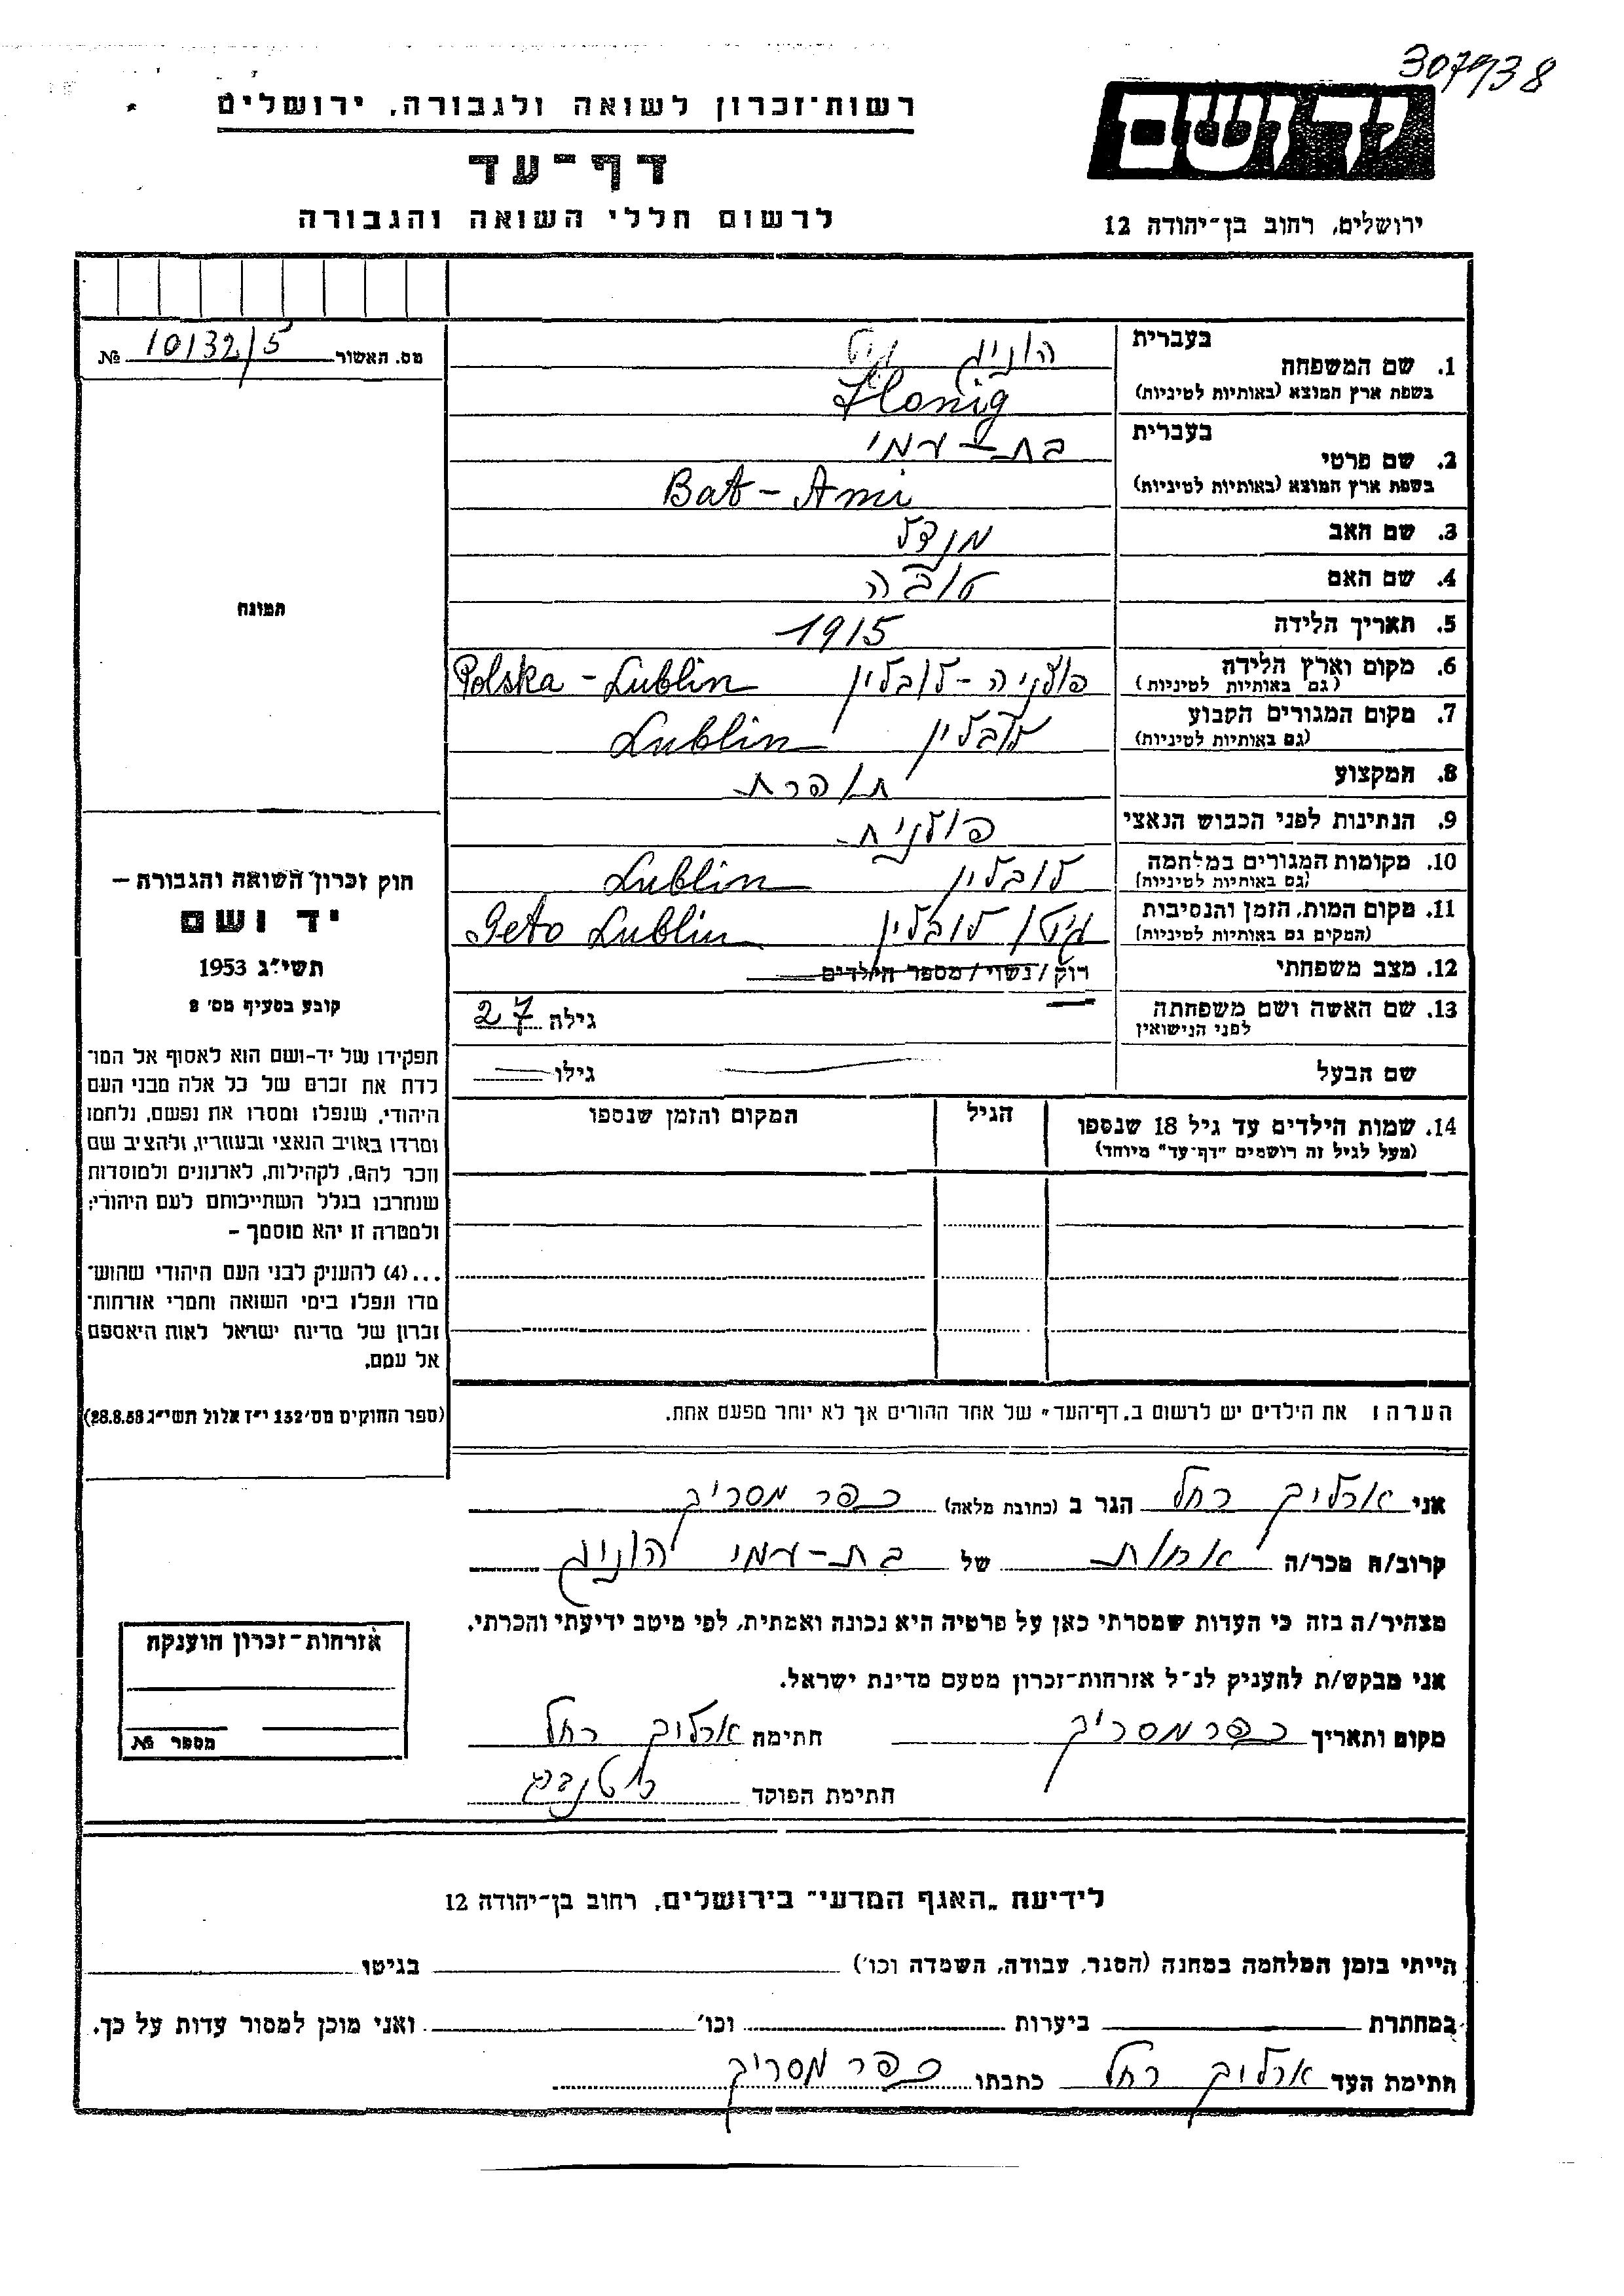 307938
יד ושם
רשות-זכרון לשואה ולגבורה, ירושלים
דף-עד
לרשום חללי השואה והגבורה
ירושלים, רחוב בן-יהודה 12
מס. האשור 10132/5 №
תמונה
1. שם המשפחה בעברית הוניג
בשפת ארץ המוצא (באותיות לטיניות) Honig
2. שם פרטי בעברית בת-עמי
בשפת ארץ המוצא (באותיות לטיניות) Bat-Ami
3. שם האב מנדל
4. שם האם טובה
5. תאריך הלידה 1915
6. מקום וארץ הלידה (גם באותיות לטיניות) פולניה-לובלין Polska-Lublin
7. מקום המגורים הקבוע (גם באותיות לטיניות) לובלין Lublin
8. המקצוע תופרת
9. הנתינות לפני הכבוש הנאצי פולנית
10. מקומות המגורים במלחמה (גם באותיות לטיניות) לובלין Lublin
11. מקום המות, הזמן והנסיבות (המקום גם באותיות לטיניות) גיטו לובלין Geto Lublin
12. מצב משפחתי רוק/נשוי/מספר הילדים
13. שם האשה ושם משפחתה לפני הנישואין גילה 27
שם הבעל גילו
14. שמות הילדים עד גיל 18 שנספו הגיל המקום והזמן שנספו
(מעל לגיל זה רושמים "דף-עד" מיוחד)
חוק זכרון השואה והגבורה –
יד ושם
תשי"ג 1953
קובע בסעיף מס' 2
תפקידו של יד-ושם הוא לאסוף אל המו־
לדת את זכרם של כל אלה מבני העם
היהודי, שנפלו ומסרו את נפשם, נלחמו
ומרדו באויב הנאצי ובעוזריו, ולהציב שם
וזכר להם, לקהילות, לארגונים ולמוסדות
שנחרבו בגלל השתייכותם לעם היהודי;
ולמטרה זו יהא מוסמך –
...(4) להעניק לבני העם היהודי שהוש־
מדו ונפלו בימי השואה והמרי אזרחות־
זכרון של מדינת ישראל לאות היאספם
אל עמם.
(ספר החוקים מס' 132 י"ז אלול תשי"ג 28.8.53)
הערה: את הילדים יש לרשום ב„דף-העד" של אחד ההורים אך לא יותר מפעם אחת.
אני ארליך רחל הגר ב (כתובת מלאה) כפר מסריק
קרוב/ה מכר/ה אחות של בת-עמי הוניג
מצהיר/ה בזה כי העדות שמסרתי כאן על פרטיה היא נכונה ואמתית, לפי מיטב ידיעתי והכרתי.
אני מבקש/ת להעניק לנ"ל אזרחות-זכרון מטעם מדינת ישראל.
מקום ותאריך כפר מסריק חתימה ארליך רחל
חתימת הפוקד
אזרחות-זכרון הוענקה
מספר №
לידיעת „האגף המדעי" בירושלים, רחוב בן-יהודה 12
הייתי בזמן המלחמה במחנה (הסגר, עבודה, השמדה וכו') בגיטו
במחתרת ביערות וכו' ואני מוכן למסור עדות על כך.
חתימת העד ארליך רחל כתבתו כפר מסריק